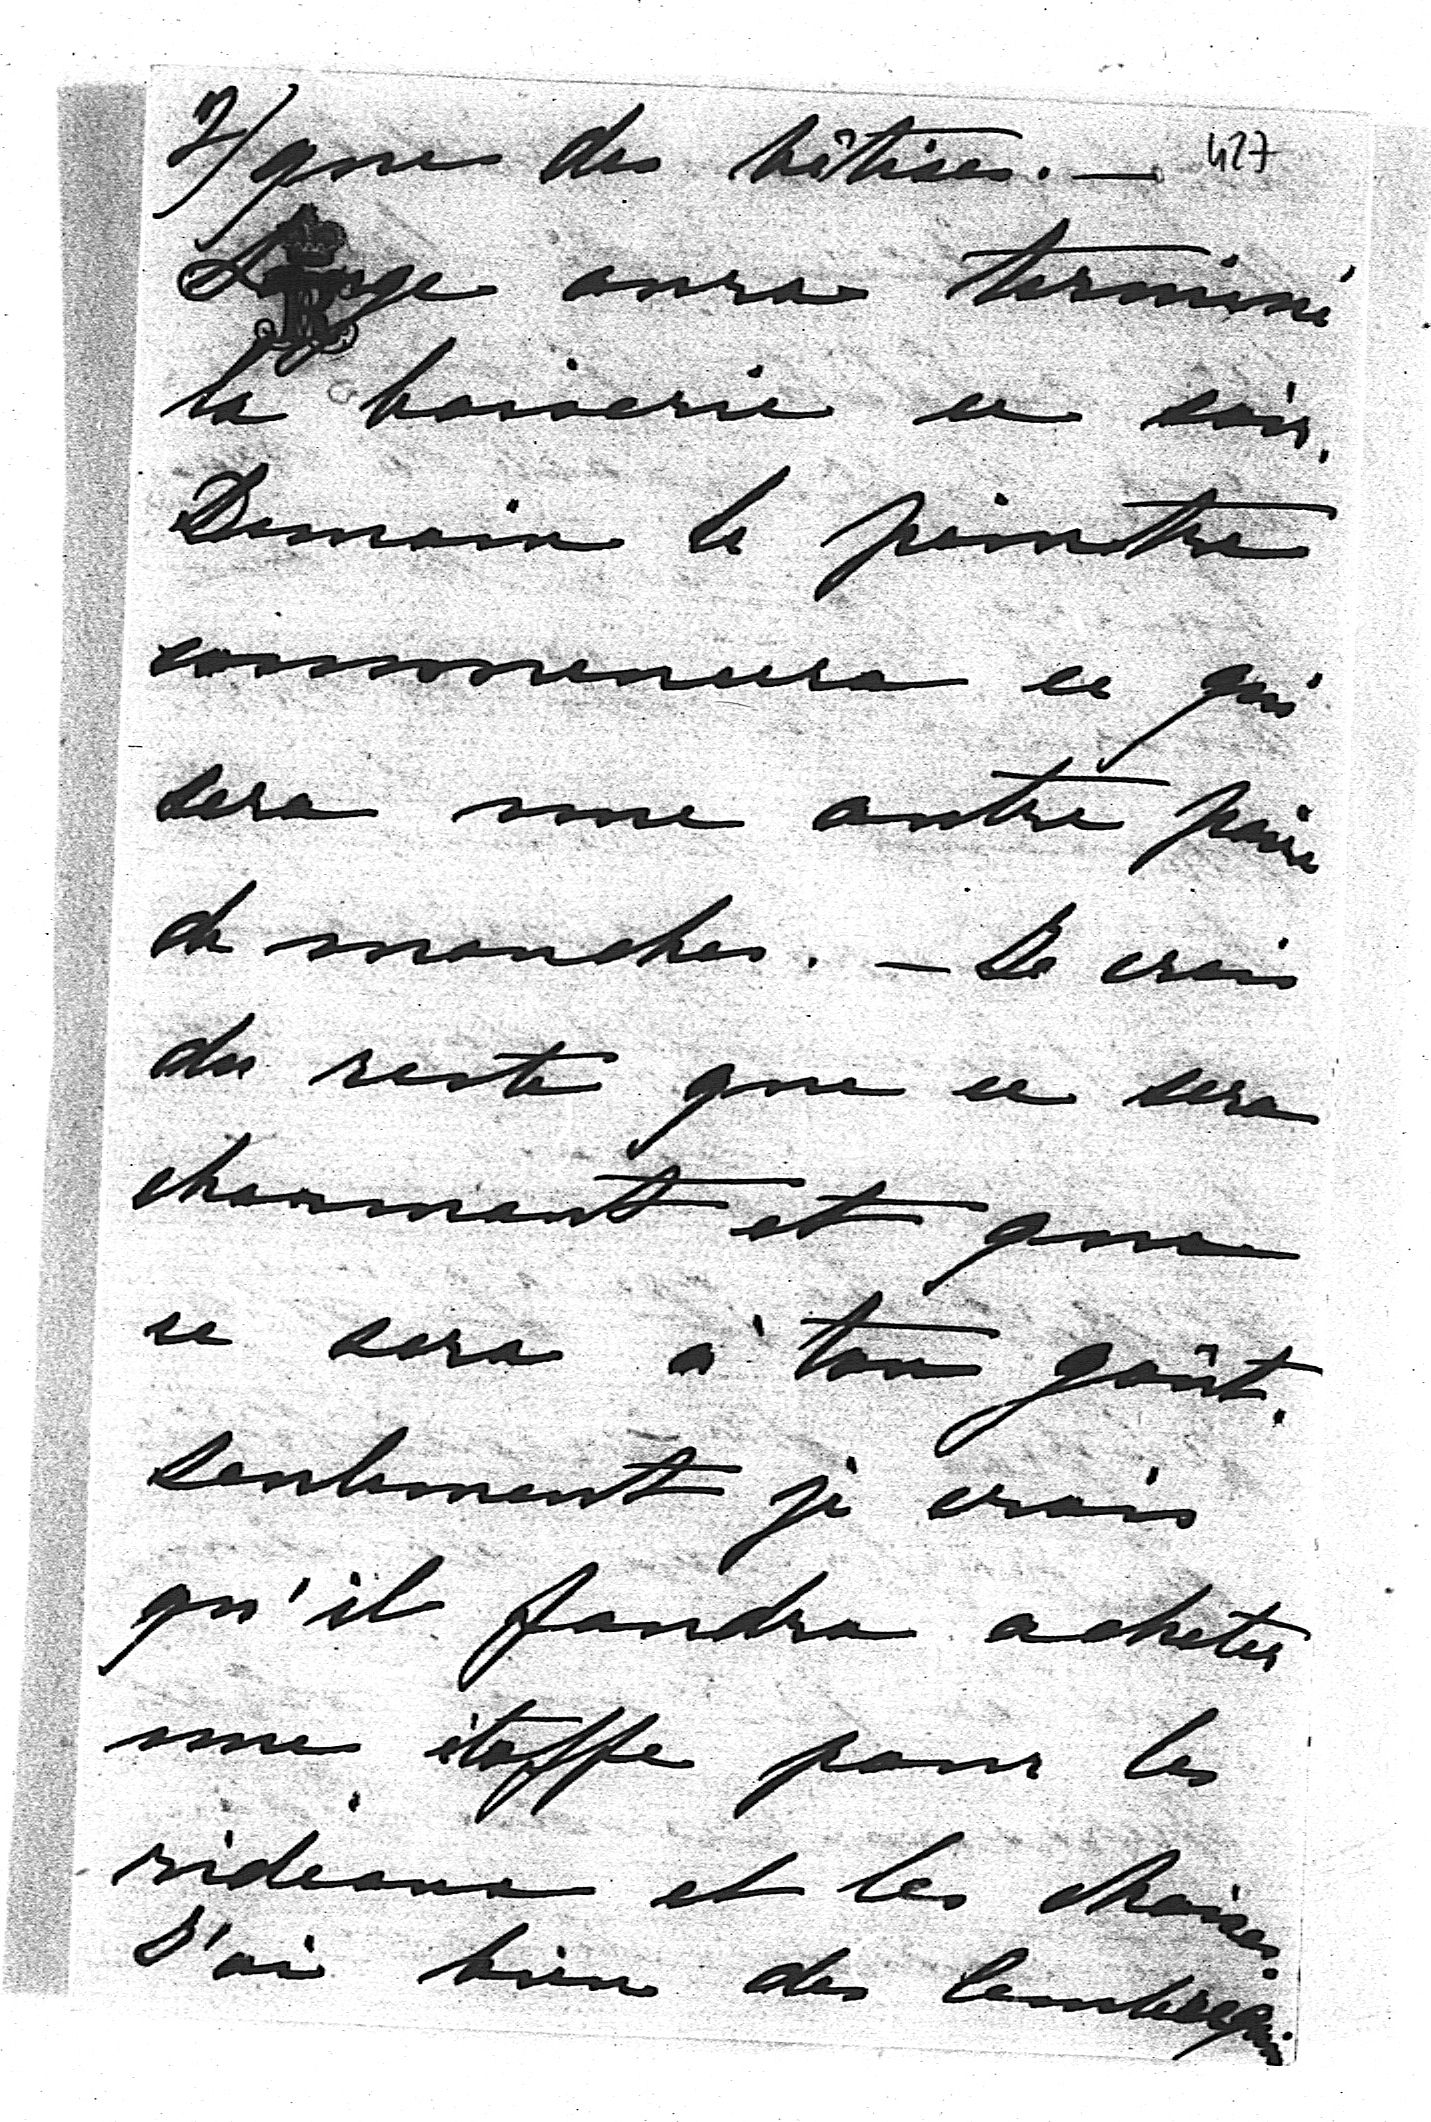 7/ que des bêtises. — 427
aura terminé
la boiserie ce soir.
Demain le peintre
commencera ce qui
sera une autre paire
de manches. — Je crois
du reste que ce sera
charmant et que
ce sera à ton goût.
Seulement je crois
qu'il faudra acheter
une étoffe pour les
rideaux et les chaises.
J'ai bien des lambrequins